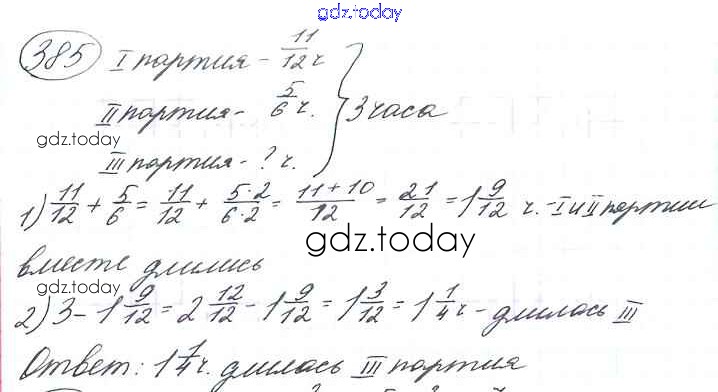 gdz.today
385 I партия - 11/12 ч
II партия - 5/6 ч. } 3 часа
gdz.today
III партия - ? ч.
1) 11/12 + 5/6 = 11/12 + 5·2/6·2 = 11+10/12 = 21/12 = 1 9/12 ч. - I и II партии
gdz.today
вместе длились
gdz.today
2) 3 - 1 9/12 = 2 12/12 - 1 9/12 = 1 3/12 = 1 1/4 ч - длилась III
Ответ: 1 1/4 ч. длилась III партия